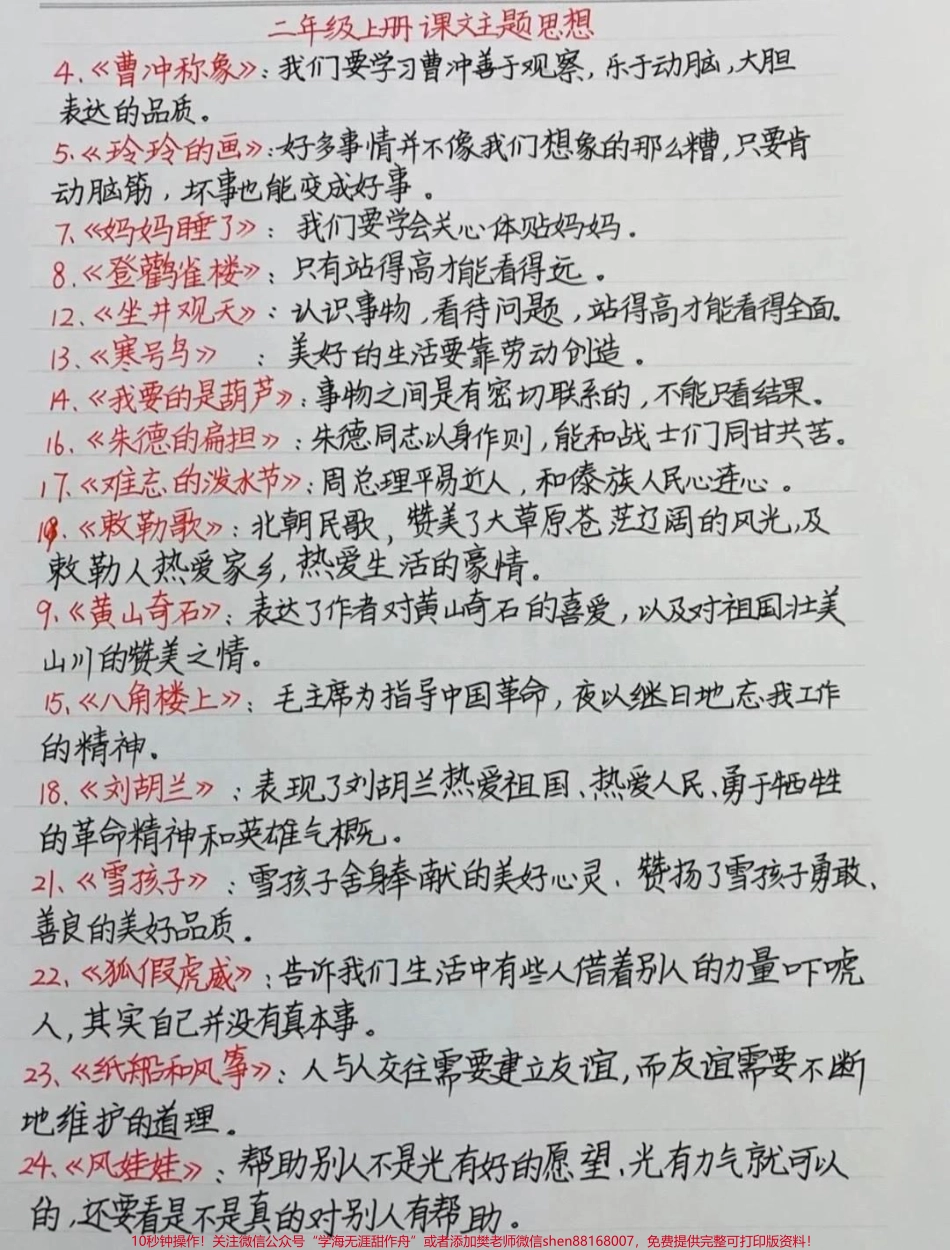 二年级上册课文主题思想
4.《曹冲称象》:我们要学习曹冲善于观察,乐于动脑,大胆
表达的品质。
5.《玲玲的画》:好多事情并不像我们想象的那么糟,只要肯
动脑筋,坏事也能变成好事。
7.《妈妈睡了》:我们要学会关心体贴妈妈。
8.《登鹳雀楼》:只有站得高才能看得远。
12.《坐井观天》:认识事物,看待问题,站得高才能看得全面。
13.《寒号鸟》:美好的生活要靠劳动创造。
14.《我要的是葫芦》:事物之间是有密切联系的,不能只看结果。
16.《朱德的扁担》:朱德同志以身作则,能和战士们同甘共苦。
17.《难忘的泼水节》:周总理平易近人,和傣族人民心连心。
19.《敕勒歌》:北朝民歌,赞美了大草原苍茫辽阔的风光,及
敕勒人热爱家乡,热爱生活的豪情。
9.《黄山奇石》:表达了作者对黄山奇石的喜爱,以及对祖国壮美
山川的赞美之情。
15.《八角楼上》:毛主席为指导中国革命,夜以继日地忘我工作
的精神。
18.《刘胡兰》:表现了刘胡兰热爱祖国、热爱人民、勇于牺牲
的革命精神和英雄气概。
21.《雪孩子》:雪孩子舍身奉献的美好心灵、赞扬了雪孩子勇敢、
善良的美好品质。
22.《狐假虎威》:告诉我们生活中有些人借着别人的力量吓唬
人,其实自己并没有真本事。
23.《纸船和风筝》:人与人交往需要建立友谊,而友谊需要不断
地维护的道理。
24.《风娃娃》:帮助别人不是光有好的愿望、光有力气就可以
的,还要看是不是真的对别人有帮助。
10秒钟操作!关注微信公众号“学海无涯甜作舟”或者添加樊老师微信shen88168007,免费提供完整可打印版资料!